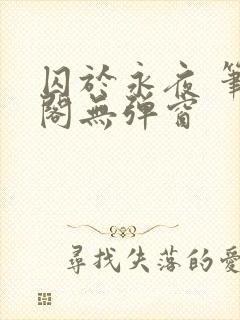 囚於永夜 筆
閣無彈窗
尋找失落的愛